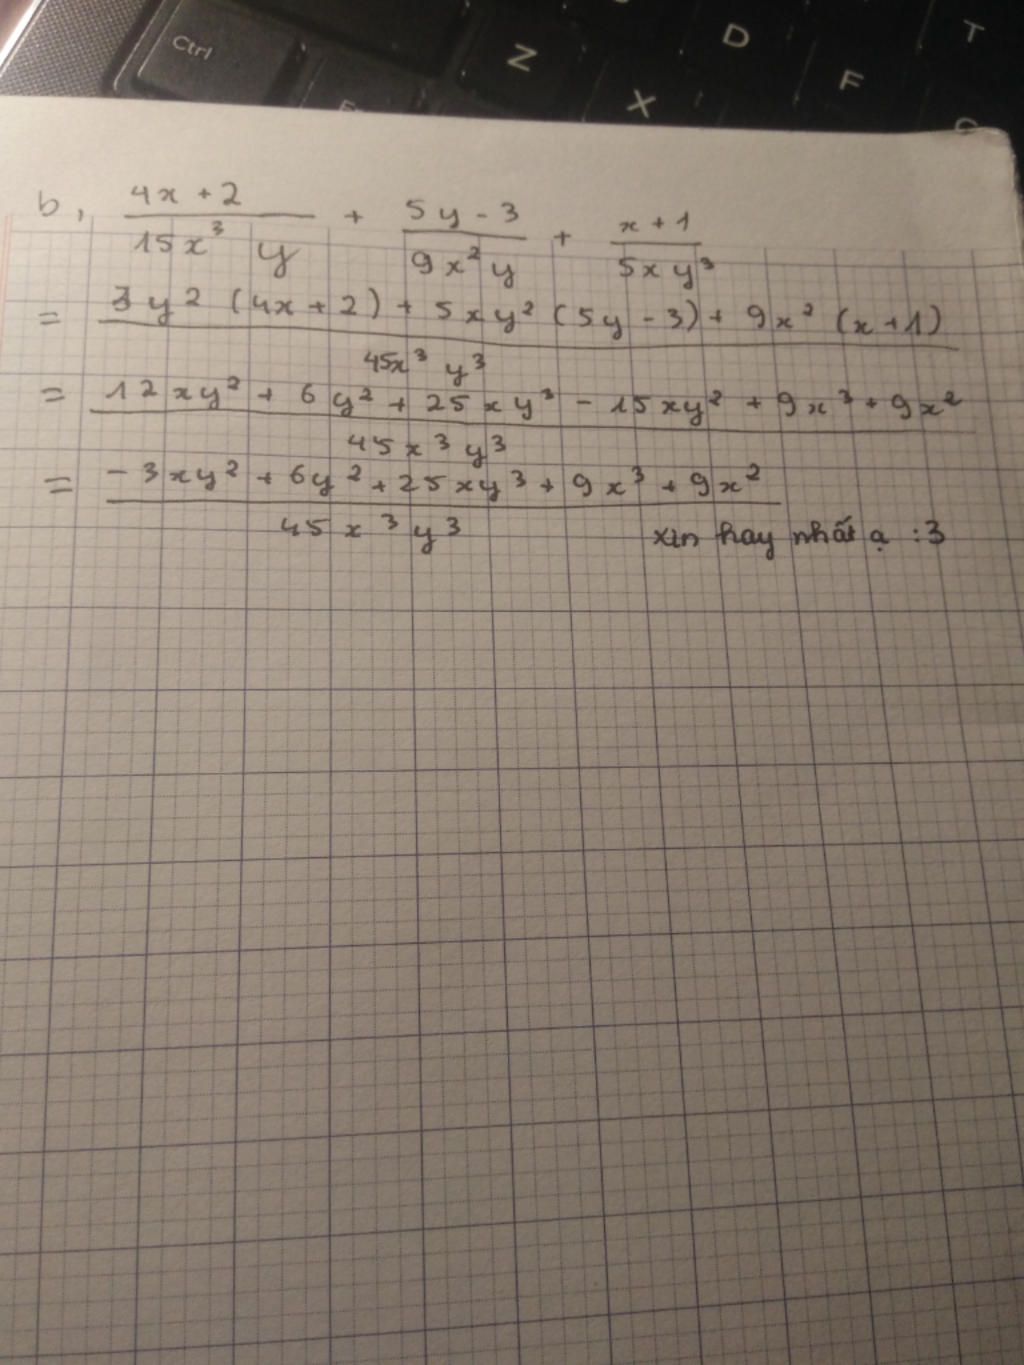 Ctrl Z D T
X F
b, (4x + 2)/(15x³y) + (5y - 3)/(9x²y) + (x + 1)/(5xy³)
= (3y² (4x + 2) + 5xy² (5y - 3) + 9x² (x + 1))/(45x³y³)
= (12xy² + 6y² + 25xy³ - 15xy² + 9x³ + 9x²)/(45x³y³)
= (-3xy² + 6y² + 25xy³ + 9x³ + 9x²)/(45x³y³)
xin hay nhất ạ :3